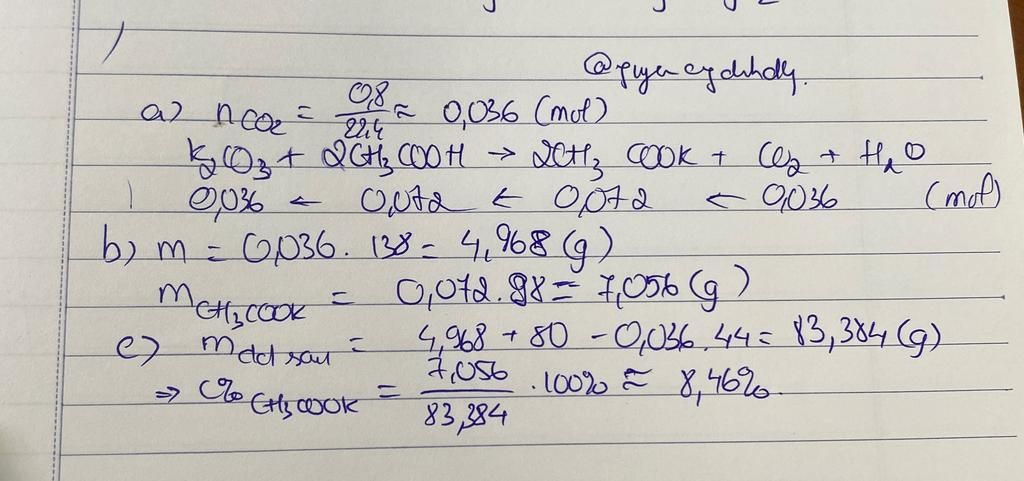 a) nCO2 = 0,8/22,4 ≈ 0,036 (mol)
K2CO3 + 2CH3COOH → 2CH3COOK + CO2 + H2O
0,036 ← 0,072 ← 0,072 ← 0,036 (mol)
b) m = 0,036. 138 = 4,968 (g)
mCH3COOK = 0,072.98 = 7,056 (g)
c) mdd sau = 4,968 + 80 - 0,036.44 = 83,384 (g)
⇒ C%CH3COOK = 7,056/83,384 .100% ≈ 8,46%.